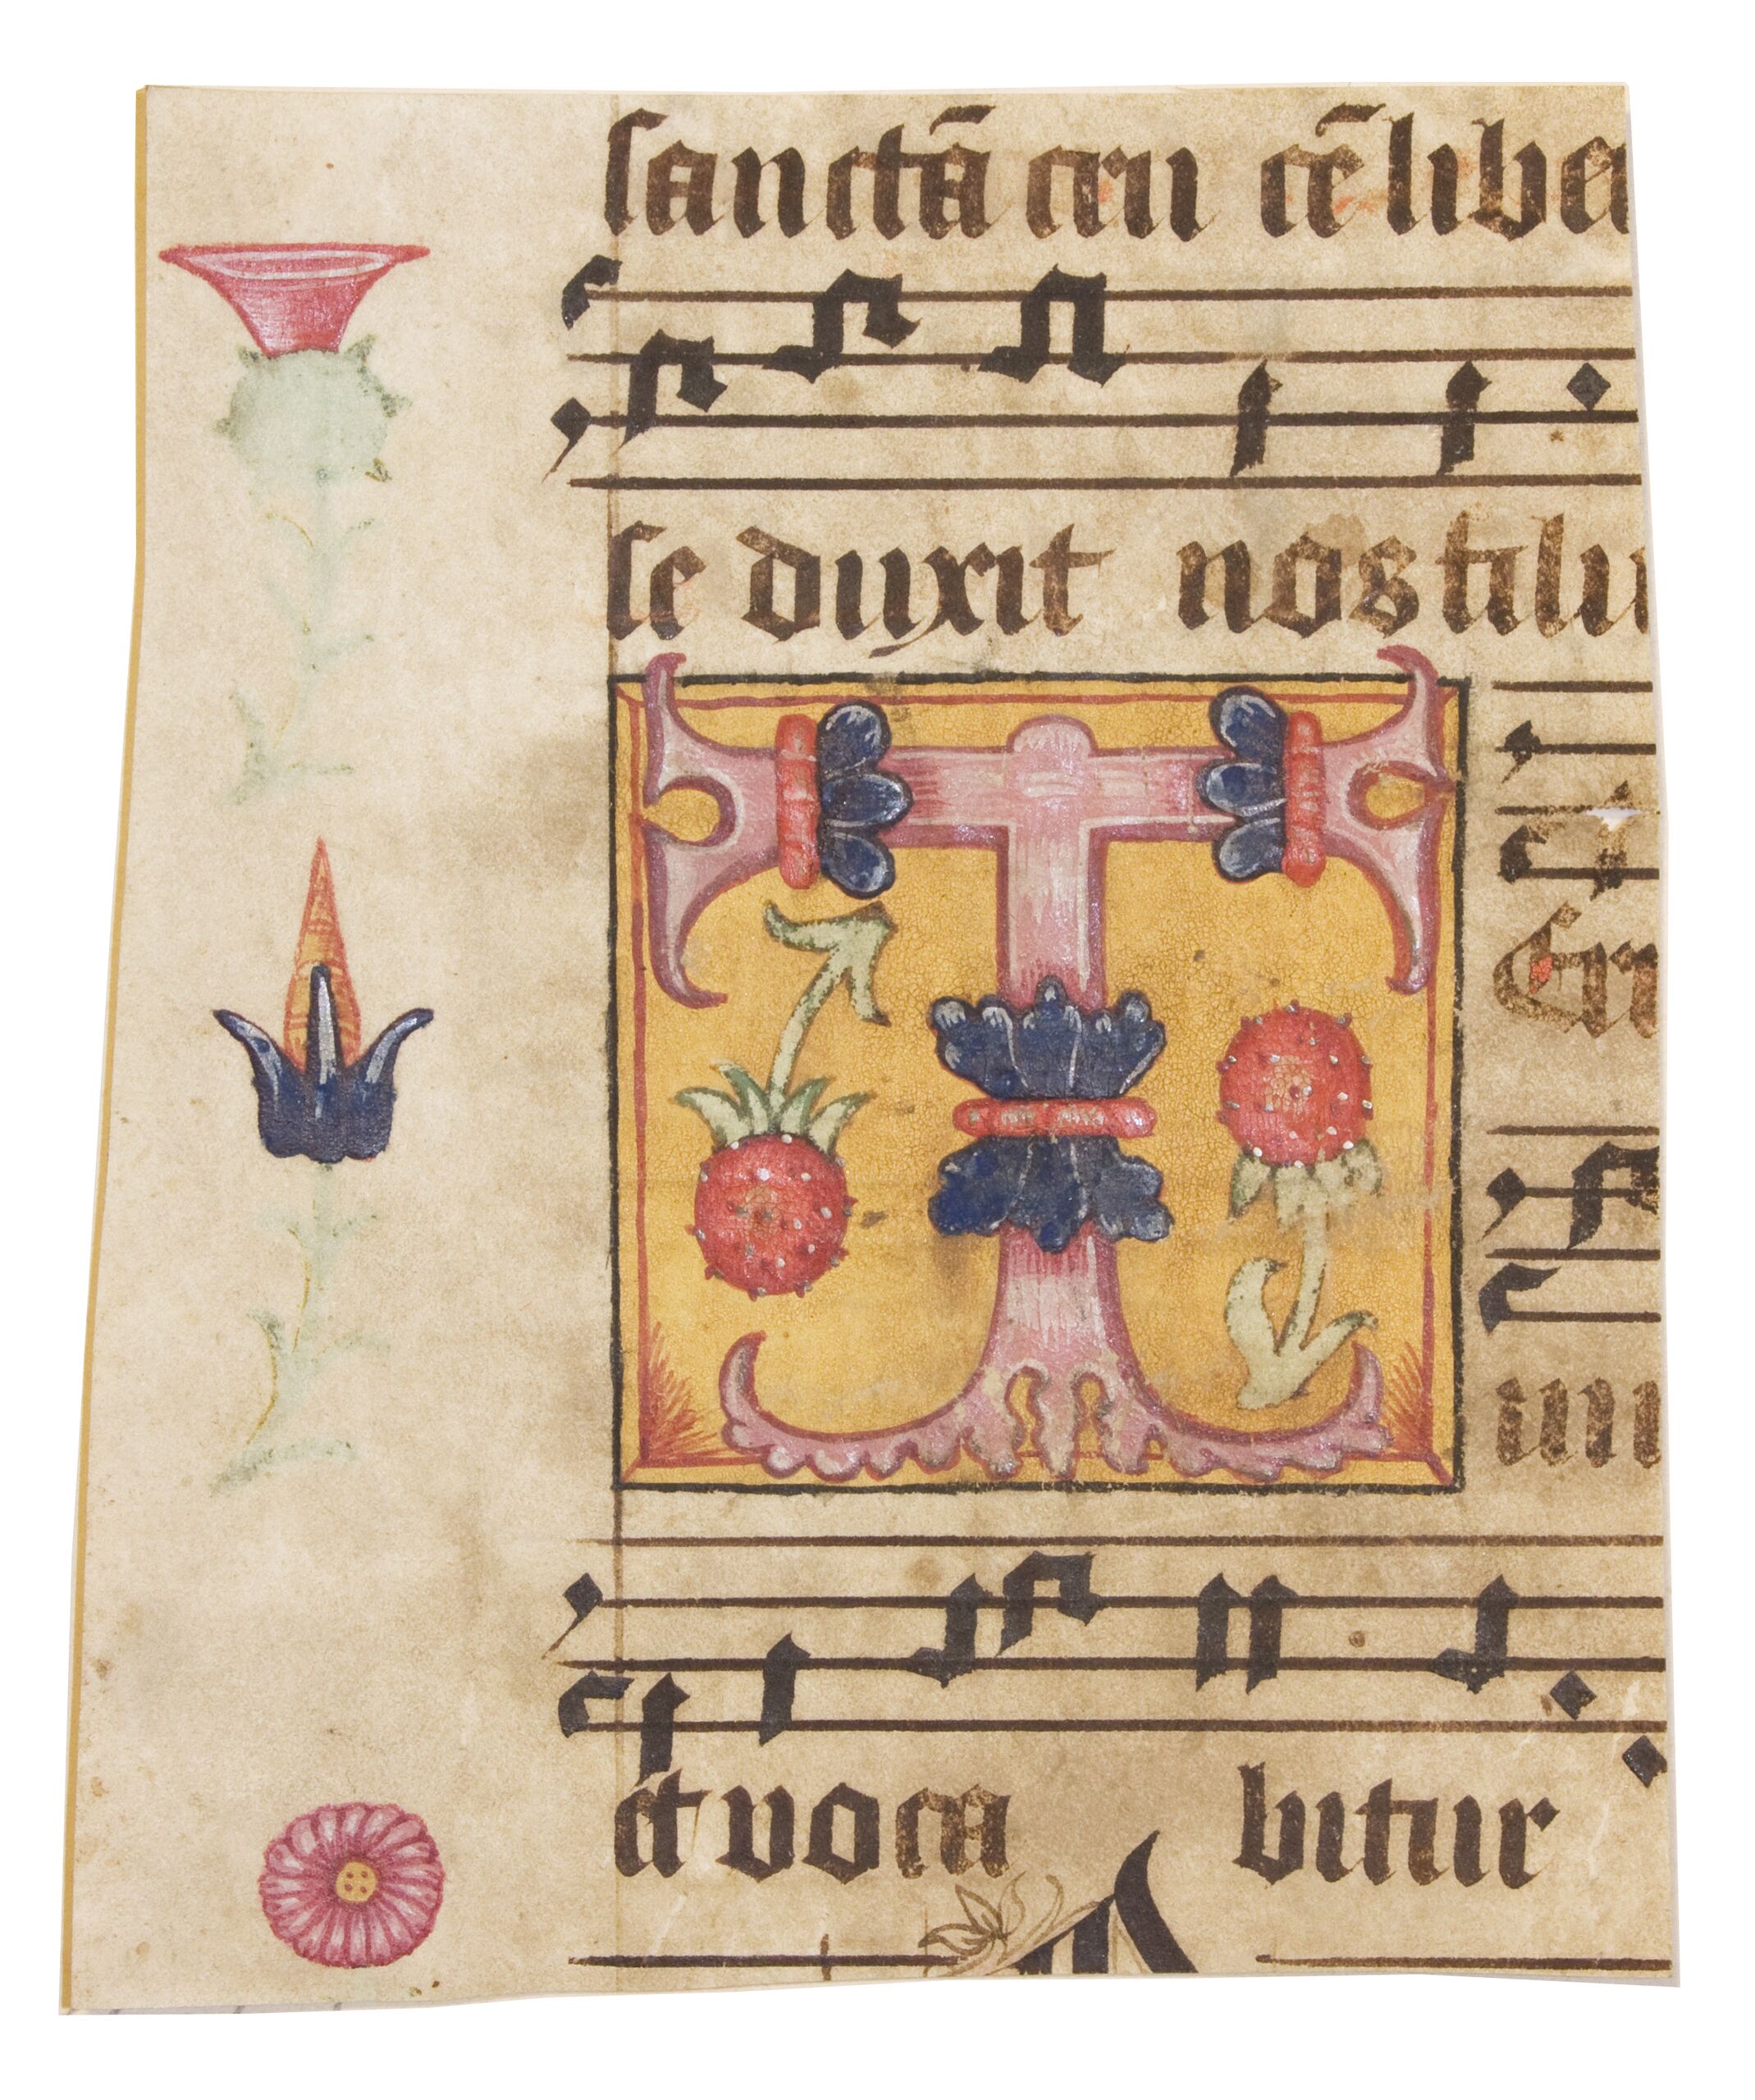 sanctā cru cē libe
se duxit nos
T
et voca bitur